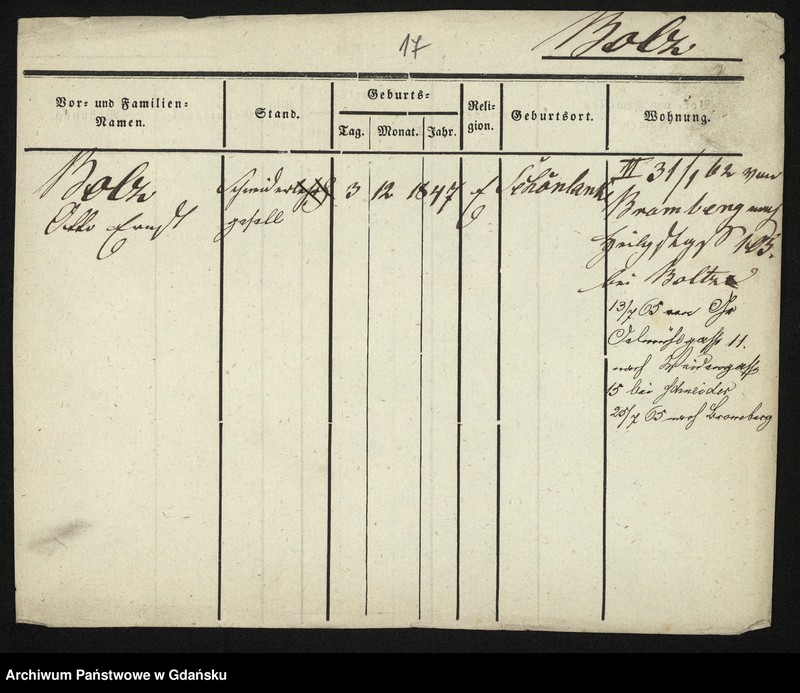 17
Bolz
Vor- und Familien-
Namen.
Stand.
Geburts-
Tag.
Monat.
Jahr.
Reli-
gion.
Geburtsort.
Wohnung.
Bolz
Otto Ernst
Schneider
gesell
3
12
1847
E
Schönlanke
III 31/1 62 von
Bromberg nach
Heilgstgass 105.
bei Boltz
13/7 65 von
11.
nach Weidengasse
15 bei Schneider
25/7 65 nach Bromberg
Archiwum Państwowe w Gdańsku